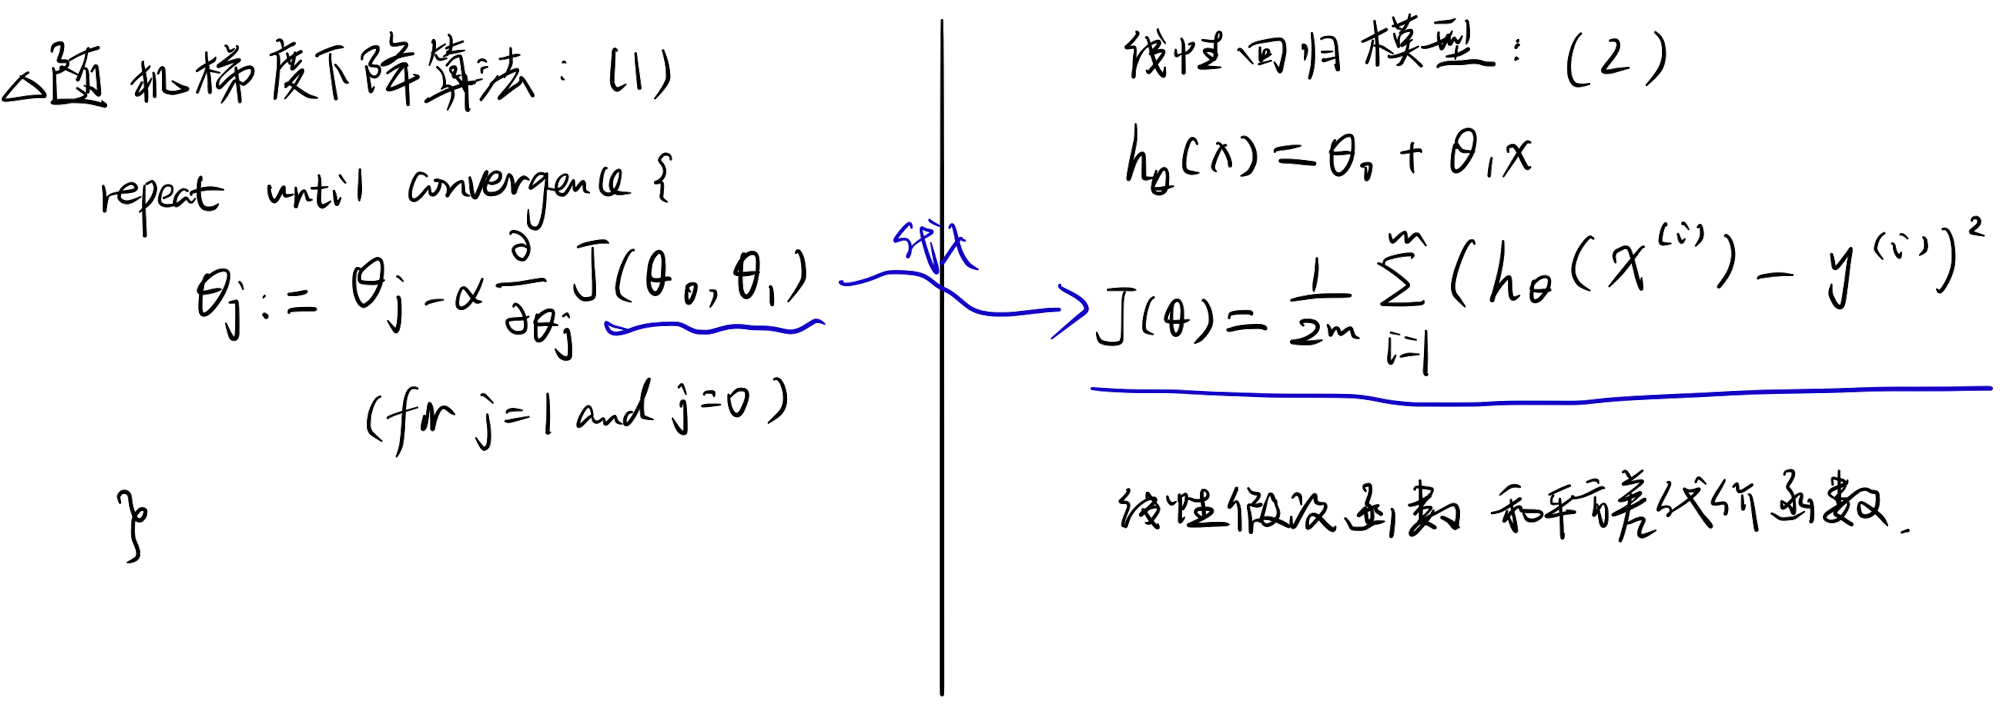 △随机梯度下降算法：(1)
repeat until convergence {
θj := θj - α ∂/∂θj J(θ₀, θ₁)
(for j=1 and j=0)
}
代入
线性回归模型：(2)
hθ(x) = θ₀ + θ₁x
J(θ) = 1/2m ∑ᵢ₌₁ᵐ (hθ(x⁽ⁱ⁾) - y⁽ⁱ⁾)²
线性假设函数 和平方差代价函数.